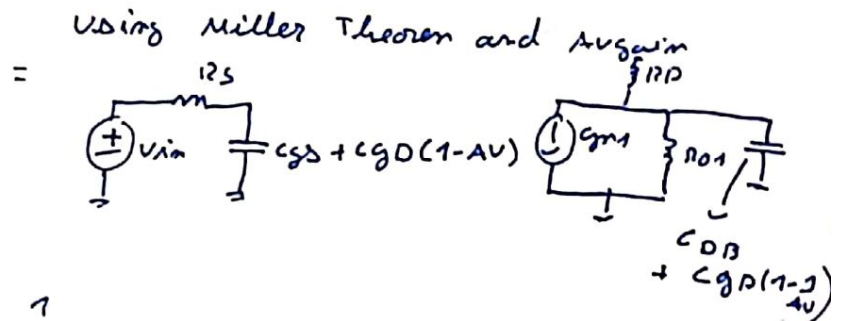 Using Miller Theorem and Av gain
=
RS
RD
Vin
Cgs + CgD(1-AV)
gm1
R01
CDB
+ CgD(1-1/AV)
1